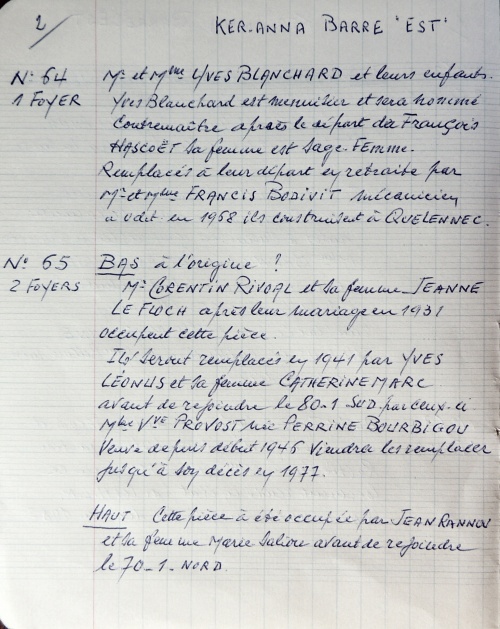 2/ KER-ANNA BARRE "EST"
N° 64 Mr et Mme YVES BLANCHARD et leurs enfants.
1 FOYER Yves Blanchard est menuisier et sera nommé
Contremaître après le départ de François
HASCOËT sa femme est Sage-Femme.
Remplacés à leur départ en retraite par
Mr et Mme FRANCIS BODIVIT mécanicien
à Odet en 1958 ils construisent à QUELENNEC.
N° 65 BAS à l'origine ?
2 FOYERS Mr CORENTIN RIVOAL et sa femme JEANNE
LE FLOCH après leur mariage en 1931
occupent cette pièce.
Ils seront remplacés en 1941 par YVES
LÉONUS et sa femme CATHERINE MARC
avant de rejoindre le 80-1 SUD par ceux-ci
Mme Vve PROVOST née PERRINE BOURBIGOU
Veuve depuis début 1946 viendra les remplacer
jusqu'à son décès en 1977.
HAUT Cette pièce à été occupée par JEAN RANNOU
et sa femme Marie avant de rejoindre
le 70-1-NORD.